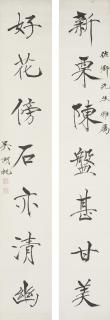 新栗陳盤甚甘美
佐卿先生雅屬
好花傍石亦清幽
吳湖帆